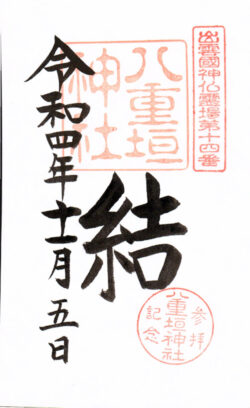 出雲國神仏霊場第十四番
八重垣
神社
結
令和四年十一月五日
参拝
八重垣神社
記念